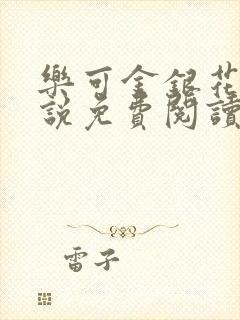 樂可金銀花
說免費閱讀
雷子